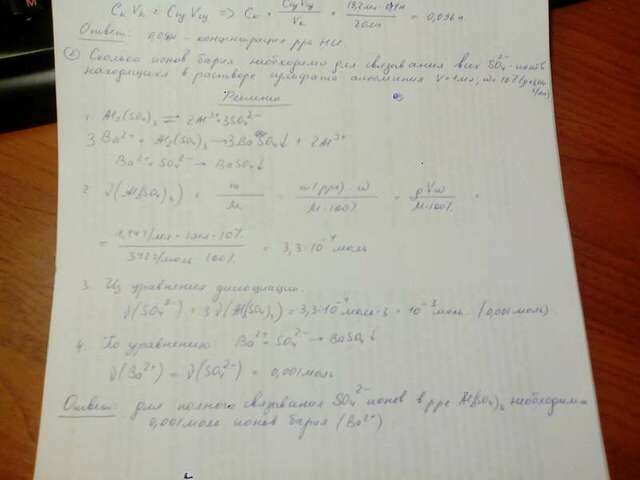 Cк Vк = Cщ Vщ => Cк = Cщ Vщ / Vк = / 20мл = 0,096н.
Ответ: концентрация р-ра HCl.
② Сколько ионов бария необходимо для связывания всех SO₄²⁻-ионов
находящихся в растворе сульфата алюминия V=1мл, ω=10%
Решение
1. Al₂(SO₄)₃ ⇌ 2Al³⁺ + 3SO₄²⁻
3Ba²⁺ + Al₂(SO₄)₃ → 3BaSO₄↓ + 2Al³⁺
Ba²⁺ + SO₄²⁻ → BaSO₄↓
2. ν(Al₂(SO₄)₃) = m / M = m(р-ра)·ω / M·100% = ρVω / M·100% =
= 1мл·10% / 342г/моль·100% = 3,3·10⁻⁴ моль
3. Из уравнения диссоциации
ν(SO₄²⁻) = 3ν(Al₂(SO₄)₃) = 3,3·10⁻⁴ моль·3 = 10⁻³ моль (0,001моль).
4. По уравнению Ba²⁺ + SO₄²⁻ → BaSO₄↓
ν(Ba²⁺) = ν(SO₄²⁻) = 0,001моль
Ответ: для полного связывания SO₄²⁻ ионов в р-ре Al₂(SO₄)₃ необходимо
0,001моль ионов бария (Ba²⁺)